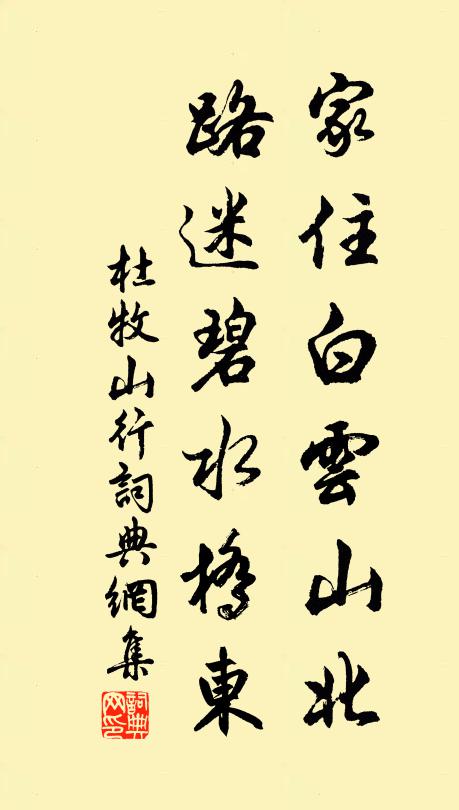 家住白雲山北
路迷碧水橋東
杜牧山行詞典網集
詞典网印